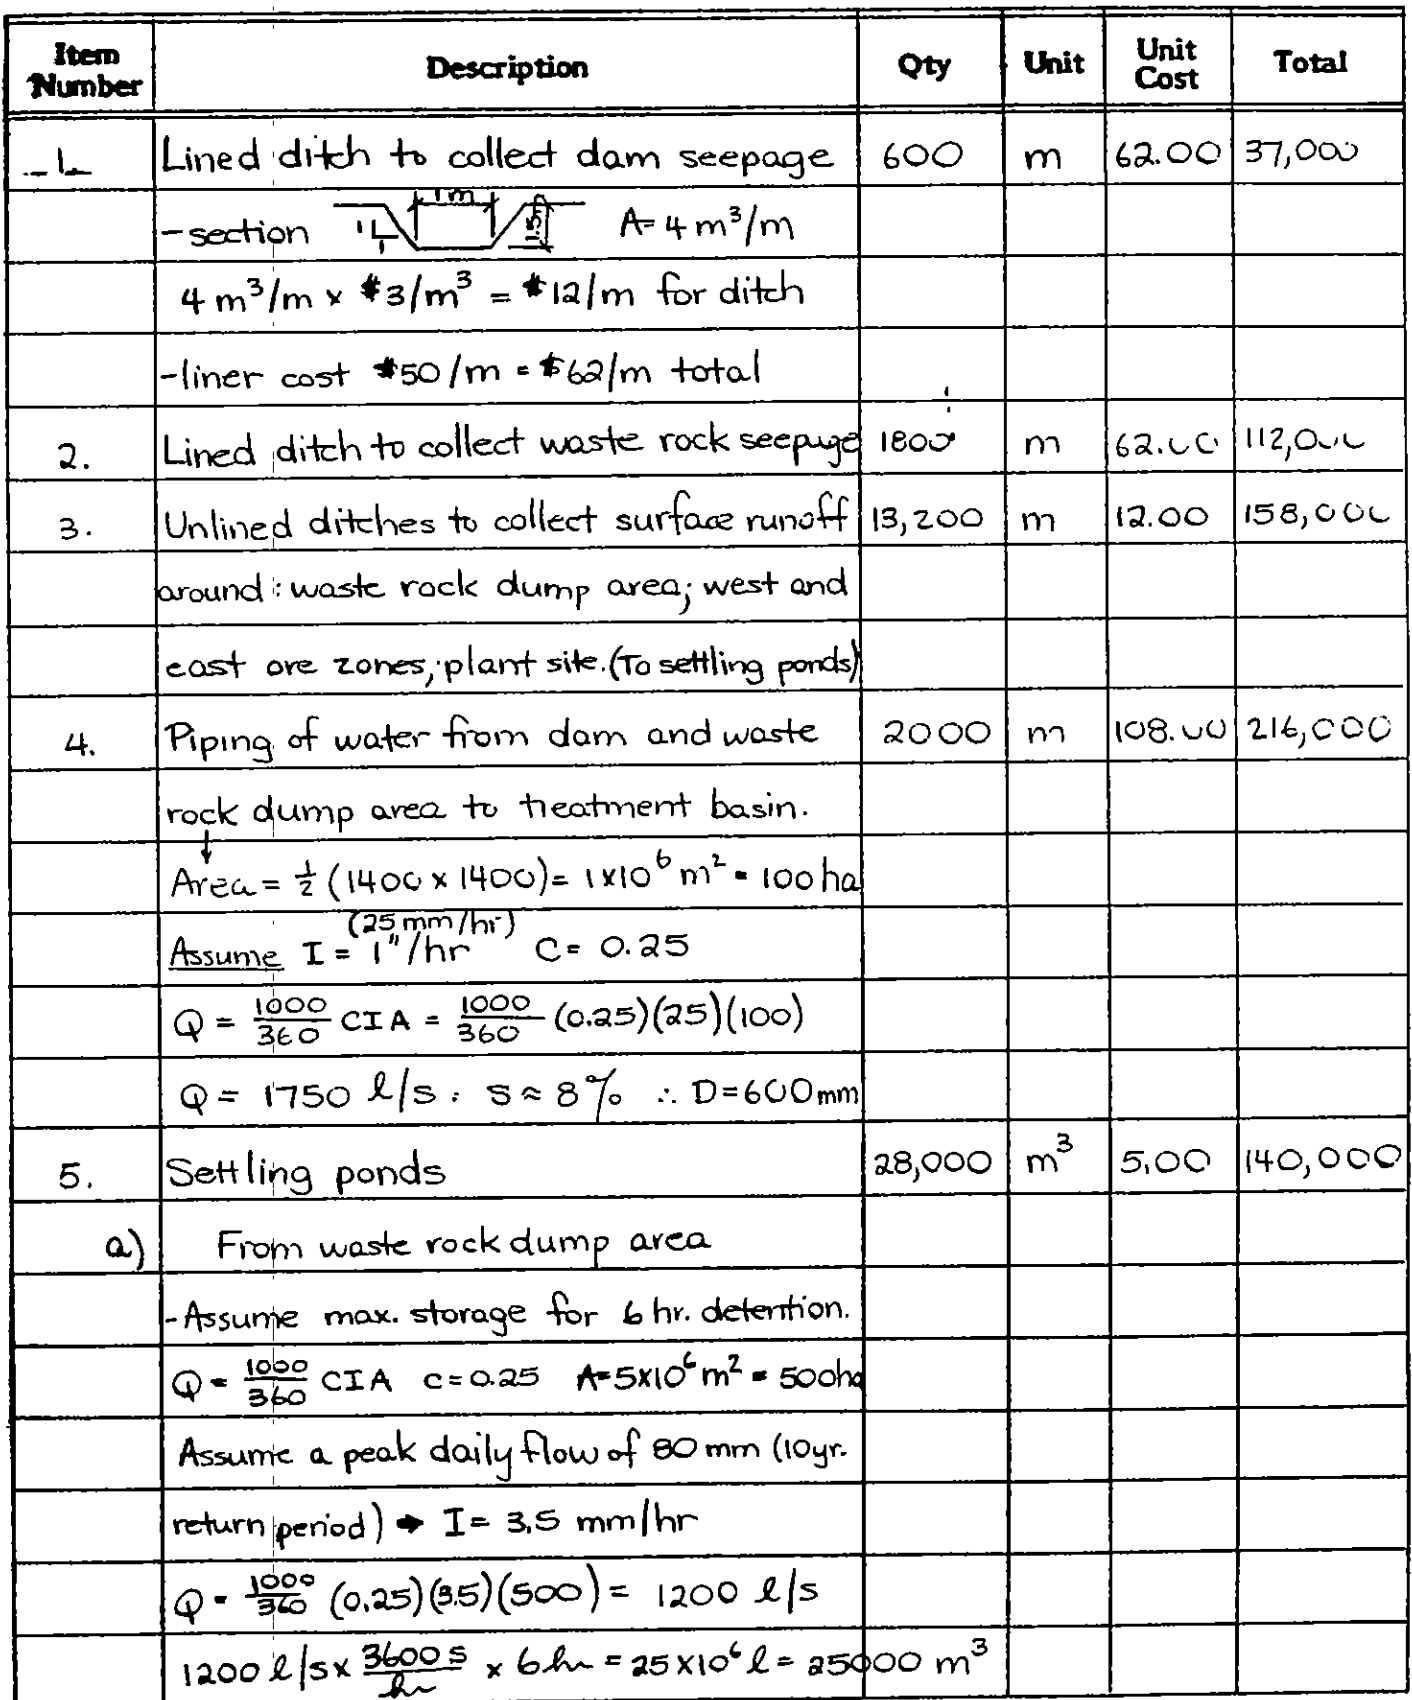 Item Number Description Qty Unit Unit Cost Total
1. Lined ditch to collect dam seepage 600 m 62.00 37,000
-section 1 1 1m 1.5 A=4 m³/m
4 m³/m x $3/m³ = $12/m for ditch
-liner cost $50/m = $62/m total
2. Lined ditch to collect waste rock seepage 1800 m 62.00 112,000
3. Unlined ditches to collect surface runoff 13,200 m 12.00 158,000
around: waste rock dump area; west and
east ore zones, plant site. (To settling ponds)
4. Piping of water from dam and waste 2000 m 108.00 216,000
rock dump area to treatment basin.
Area = ½ (1400 x 1400) = 1x10⁶ m² = 100 ha
(25 mm/hr)
Assume I = 1"/hr C = 0.25
Q = 1000/360 CIA = 1000/360 (0.25)(25)(100)
Q = 1750 l/s : S ≈ 8% ∴ D=600mm
5. Settling ponds 28,000 m³ 5.00 140,000
a) From waste rock dump area
-Assume max. storage for 6 hr. detention.
Q = 1000/360 CIA C=0.25 A=5x10⁶ m² = 500ha
Assume a peak daily flow of 80 mm (10yr.
return period) → I = 3.5 mm/hr
Q = 1000/360 (0.25)(3.5)(500) = 1200 l/s
1200 l/s x 3600 s/hr x 6 hr = 25x10⁶ l = 25000 m³